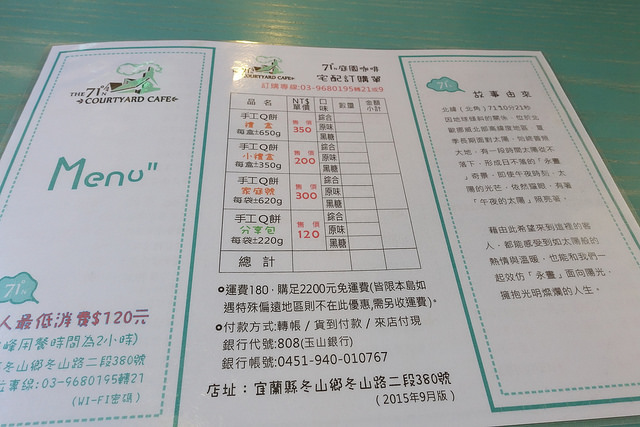 THE 71°N
COURTYARD CAFE
Menu"
71°N
人最低消費$120元
峰用餐時間為2小時)
冬山鄉冬山路二段380號
專線:03-9680195轉21
(WI-FI密碼)
71°N庭園咖啡
COURTYARD CAFE
宅配訂購單
訂購專線:03-9680195轉21或9
品 名 NT$單價 口味 數量 金額小計
手工Q餅 禮 盒 每盒±650g 售 價 350 綜合 原味 黑糖
手工Q餅 小禮盒 每盒±350g 售 價 200 綜合 原味 黑糖
手工Q餅 家庭號 每袋±620g 售 價 300 綜合 原味 黑糖
手工Q餅 分享包 每袋±220g 售 價 120 綜合 原味 黑糖
總 計
運費180,購足2200元免運費(皆限本島如
遇特殊偏遠地區則不在此優惠,需另收運費)。
付款方式:轉帳 / 貨到付款 / 來店付現
銀行代號:808(玉山銀行)
銀行帳號:0451-940-010767
店址:宜蘭縣冬山鄉冬山路二段380號
(2015年9月版)
71°N
故 事 由 來
北緯(北角)71度10分21秒
因地球傾斜的關係,位於北
歐挪威北部高緯度地區,夏
季長期面對太陽,始終白晝
大地,有一段時間太陽從不
落下,形成日不落的「永晝
」奇景,即使午夜時刻,太
陽的光芒,依然耀眼,有著
「午夜的太陽」稱號著。
藉由此希望來到這裡的客
人,都能感受到如太陽般的
熱情與溫暖,也能和我們一
起效仿「永晝」面向陽光,
擁抱光明燦爛的人生。